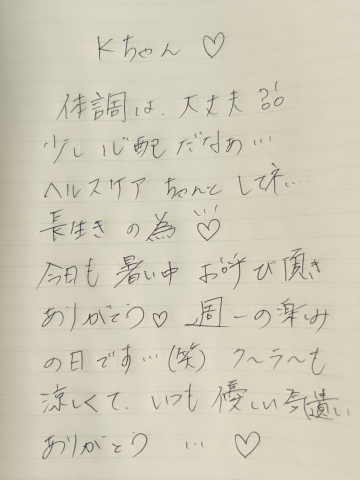 Kちゃん ♡
体調は、大丈夫??
少し心配だなぁ…
ヘルスケア ちゃんと してネ…
長生き の為…♡
今日も 暑い中 お呼び頂き
ありがとう♡ 週一の楽しみ
の日です…(笑) ク〜ラ〜も
涼しくて、いつも 優しい気遣い
ありがとう … ♡